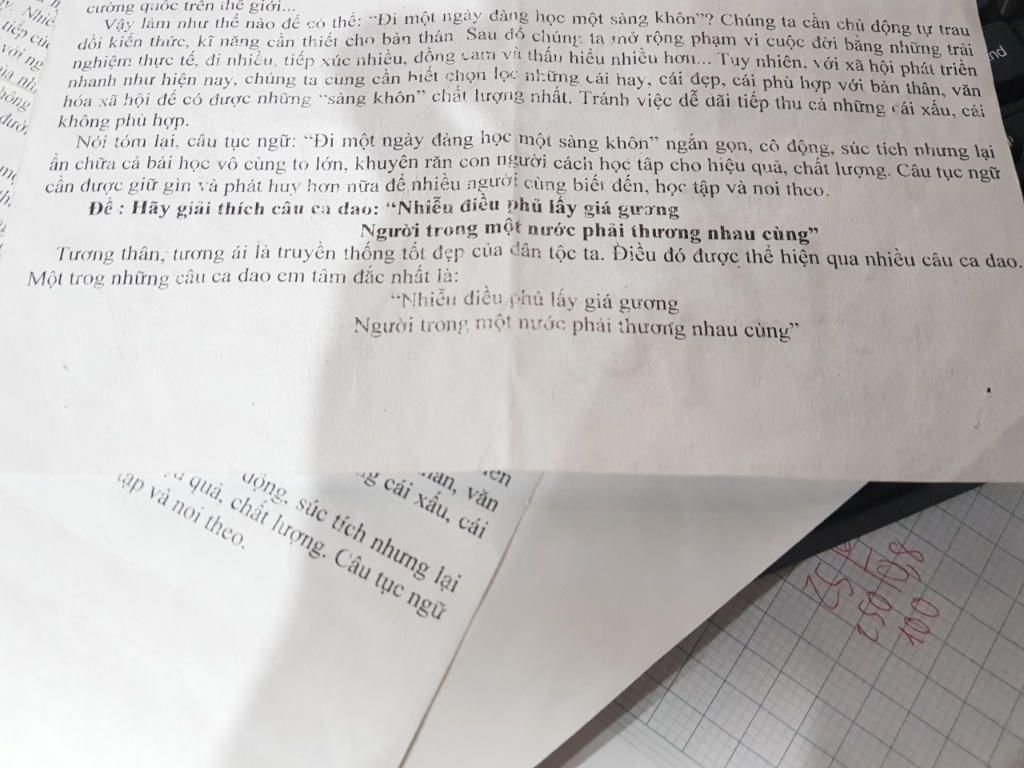 cường quốc trên thế giới...
Vậy làm như thế nào để có thể: “Đi một ngày đàng học một sàng khôn”? Chúng ta cần chủ động tự trau
dồi kiến thức, kĩ năng cần thiết cho bản thân Sau đó chúng ta mở rộng phạm vi cuộc đời bằng những trải
nghiệm thực tế, đi nhiều, tiếp xúc nhiều, đồng cảm và thấu hiểu nhiều hơn... Tuy nhiên, với xã hội phát triển
nhanh như hiện nay, chúng ta cũng cần biết chọn lọc những cái hay, cái đẹp, cái phù hợp với bản thân, văn
hóa xã hội để có được những “sàng khôn” chất lượng nhất. Tránh việc dễ dãi tiếp thu cả những cái xấu, cái
không phù hợp.
Nói tóm lại, câu tục ngữ: “Đi một ngày đàng học một sàng khôn” ngắn gọn, cô động, súc tích nhưng lại
ẩn chứa cả bài học vô cùng to lớn, khuyên răn con người cách học tập cho hiệu quả, chất lượng. Câu tục ngữ
cần được giữ gìn và phát huy hơn nữa để nhiều người cùng biết đến, học tập và noi theo.
Đề : Hãy giải thích câu ca dao: “Nhiễu điều phủ lấy giá gương
Người trong một nước phải thương nhau cùng”
Tương thân, tương ái là truyền thống tốt đẹp của dân tộc ta. Điều đó được thể hiện qua nhiều câu ca dao.
Một trog những câu ca dao em tâm đắc nhất là:
“Nhiễu điều phủ lấy giá gương
Người trong một nước phải thương nhau cùng”
văn
cái xấu, cái
động, súc tích nhưng lại
quả, chất lượng. Câu tục ngữ
và noi theo.
25
250 0,8
100